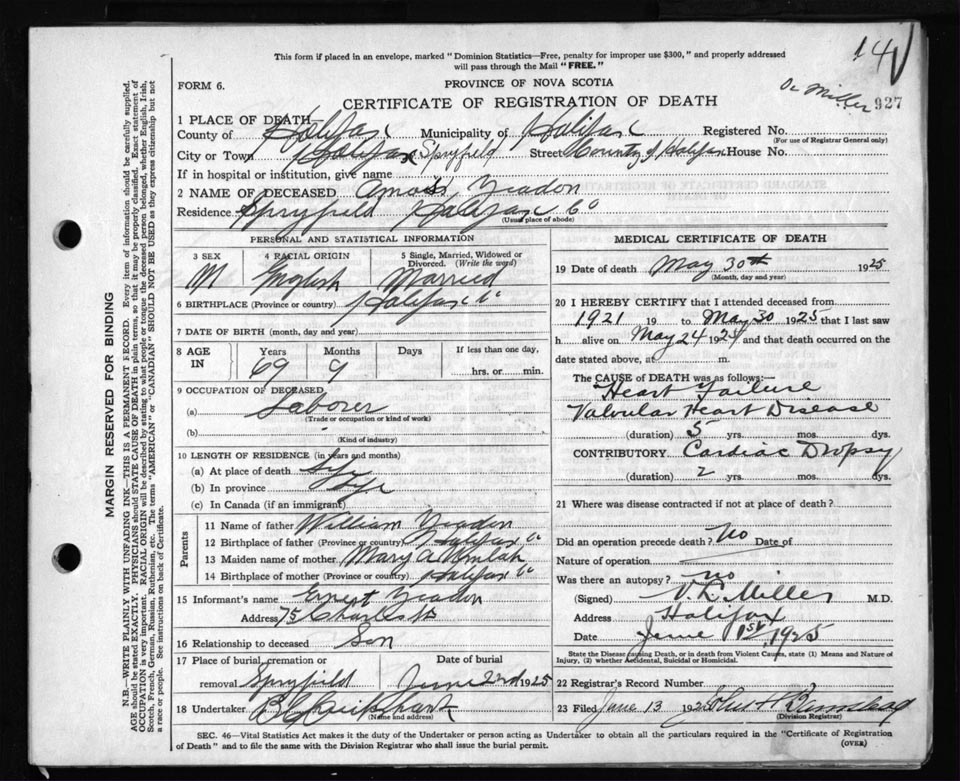 This form if placed in an envelope, marked "Dominion Statistics—Free, penalty for improper use $300," and properly addressed
will pass through the Mail "FREE."
14
FORM 6.
PROVINCE OF NOVA SCOTIA
Dr Miller
927
CERTIFICATE OF REGISTRATION OF DEATH
1 PLACE OF DEATH—
County of Halifax Municipality of Halifax Registered No.
(For use of Registrar General only)
City or Town Halifax Spryfield Street County of Halifax House No.
If in hospital or institution, give name
2 NAME OF DECEASED Amos Yeadon
Residence Spryfield Halifax Co
(Usual place of abode)
PERSONAL AND STATISTICAL INFORMATION
3 SEX 4 RACIAL ORIGIN 5 Single, Married, Widowed or Divorced. (Write the word)
M English Married
6 BIRTHPLACE (Province or country) Halifax Co
7 DATE OF BIRTH (month, day and year)
8 AGE IN Years Months Days If less than one day,
69 9 hrs. or min.
9 OCCUPATION OF DECEASED
(a) Laborer
(Trade or occupation or kind of work)
(b)
(Kind of industry)
10 LENGTH OF RESIDENCE (in years and months)
(a) At place of death Life
(b) In province Life
(c) In Canada (if an immigrant)
Parents
11 Name of father William Yeadon
12 Birthplace of father (Province or country) Halifax Co
13 Maiden name of mother Mary A Umlah
14 Birthplace of mother (Province or country) Halifax Co
15 Informant's name Ernest Yeadon
Address 75 Charles St
16 Relationship to deceased Son
17 Place of burial, cremation or Date of burial
removal Spryfield June 2nd 1925
18 Undertaker
(Name and address)
MEDICAL CERTIFICATE OF DEATH
19 Date of death May 30th 1925
(Month, day and year)
20 I HEREBY CERTIFY that I attended deceased from
1921 19 to May 30 1925 that I last saw
h alive on May 24 1925 and that death occurred on the
date stated above, at m.
The CAUSE of DEATH was as follows:—
Heart Failure
Valvular Heart Disease
(duration) 5 yrs. mos. dys.
CONTRIBUTORY Cardiac Dropsy
(duration) 2 yrs. mos. dys.
21 Where was disease contracted if not at place of death?
Did an operation precede death? No Date of
Nature of operation
Was there an autopsy? no
(Signed) V. L. Miller M.D.
Address Halifax
Date June 1st, 1925
State the Disease causing Death, or in death from Violent Causes, state (1) Means and Nature of
Injury, (2) whether Accidental, Suicidal or Homicidal.
22 Registrar's Record Number
23 Filed June 13 192 John H Bumstead
(Division Registrar)
SEC. 46—Vital Statistics Act makes it the duty of the Undertaker or person acting as Undertaker to obtain all the particulars required in the "Certificate of Registration
of Death" and to file the same with the Division Registrar who shall issue the burial permit.
(OVER)
MARGIN RESERVED FOR BINDING
N.B.—WRITE PLAINLY WITH UNFADING INK—THIS IS A PERMANENT RECORD. Every item of information should be carefully supplied.
AGE should be stated EXACTLY. PHYSICIANS should STATE CAUSE OF DEATH in plain terms, so that it may be properly classified. Exact statement of
OCCUPATION is very important. RACIAL ORIGIN will be described by stating to what people or tongue the deceased person belonged, whether English, Irish,
Scotch, French, German, Russian, Ruthenian, etc. The terms "AMERICAN" or "CANADIAN" SHOULD NOT BE USED as they express citizenship but not
a race or people. See instructions on back of Certificate.